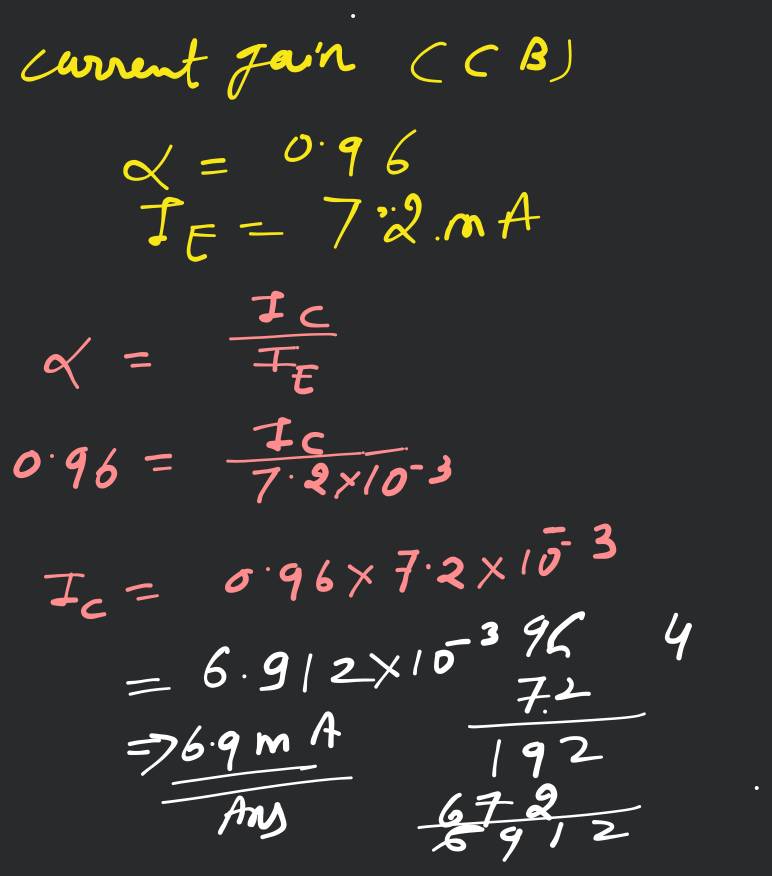 current gain (CB)
α = 0.96
I_E = 7.2 mA
α = I_C / I_E
0.96 = I_C / 7.2×10^-3
I_C = 0.96 × 7.2 × 10^-3
= 6.912×10^-3
⇒ 6.9 mA
Ans
96
7.2
192
672
6912
4